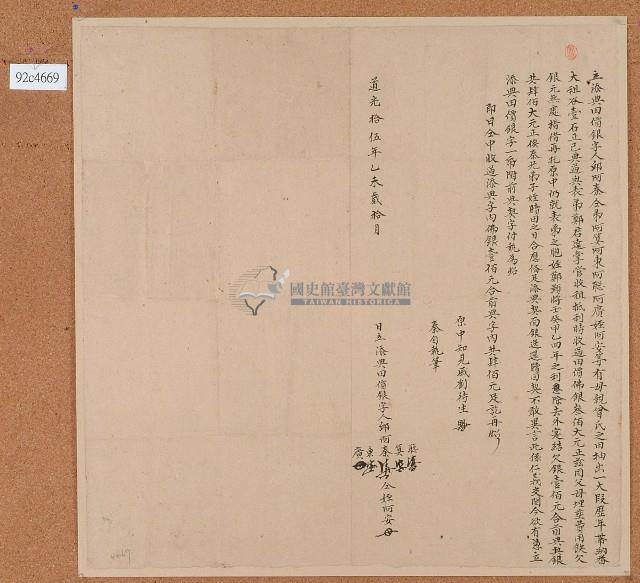 立添典田價銀字人鄭阿泰仝弟阿箕阿東阿聡阿廣姪阿安等有母親曾氏之田抽出一大叚歷年帶納番
大租谷壹石正已典過與表弟鄭君達掌管收租抵利時收過田價佛銀叁佰大元正茲因父母埋塟費用缺欠
銀元無處措借再托原中仍就表弟之胞姪鄭 將壬癸甲乙四年之利息除去外寔結欠銀壹佰元合前典契銀
共肆佰大元正俟泰兄弟子姪贖田之日合應俻足添典契面銀送還贖回契不敢異言此係仁義交關今欲有憑立
添典田價銀字一帋附前典契字付執為炤
即日仝中收過添典字內佛銀壹佰元合前典字內共肆佰元足訖再炤
原中知見戚劉待生
泰自執筆
道光拾伍年乙未歲拾月
日立添典田價銀字人鄭阿泰 仝姪阿安
聡
箕
東
廣
92c4669
國史館臺灣文獻館
TAIWAN HISTORICA
4669